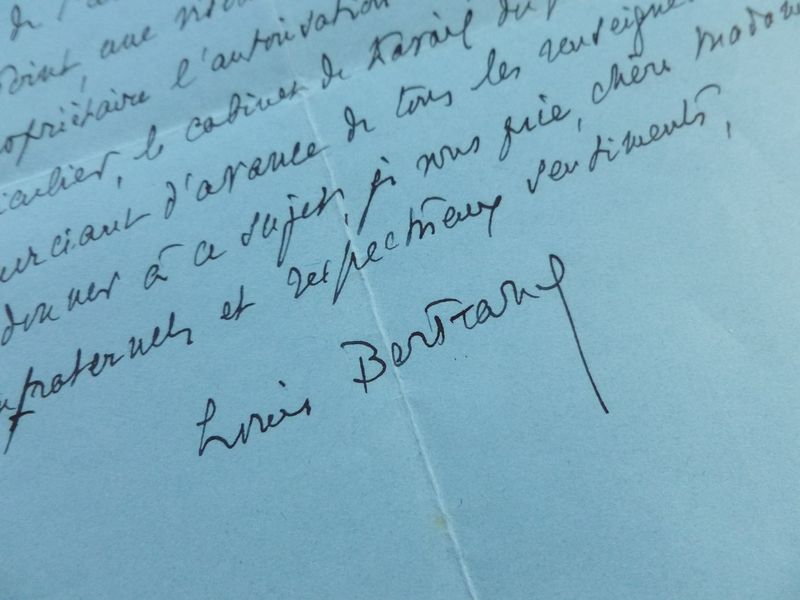 de l'a
point, que vous
opriétaire l'autorisation
iculier, le cabinet de travail du p
erciant d'avance de tous les renseigne
donner à ce sujet, je vous prie, chère Madam
nfraternels et respectueux sentiments,
Louis Bertrand